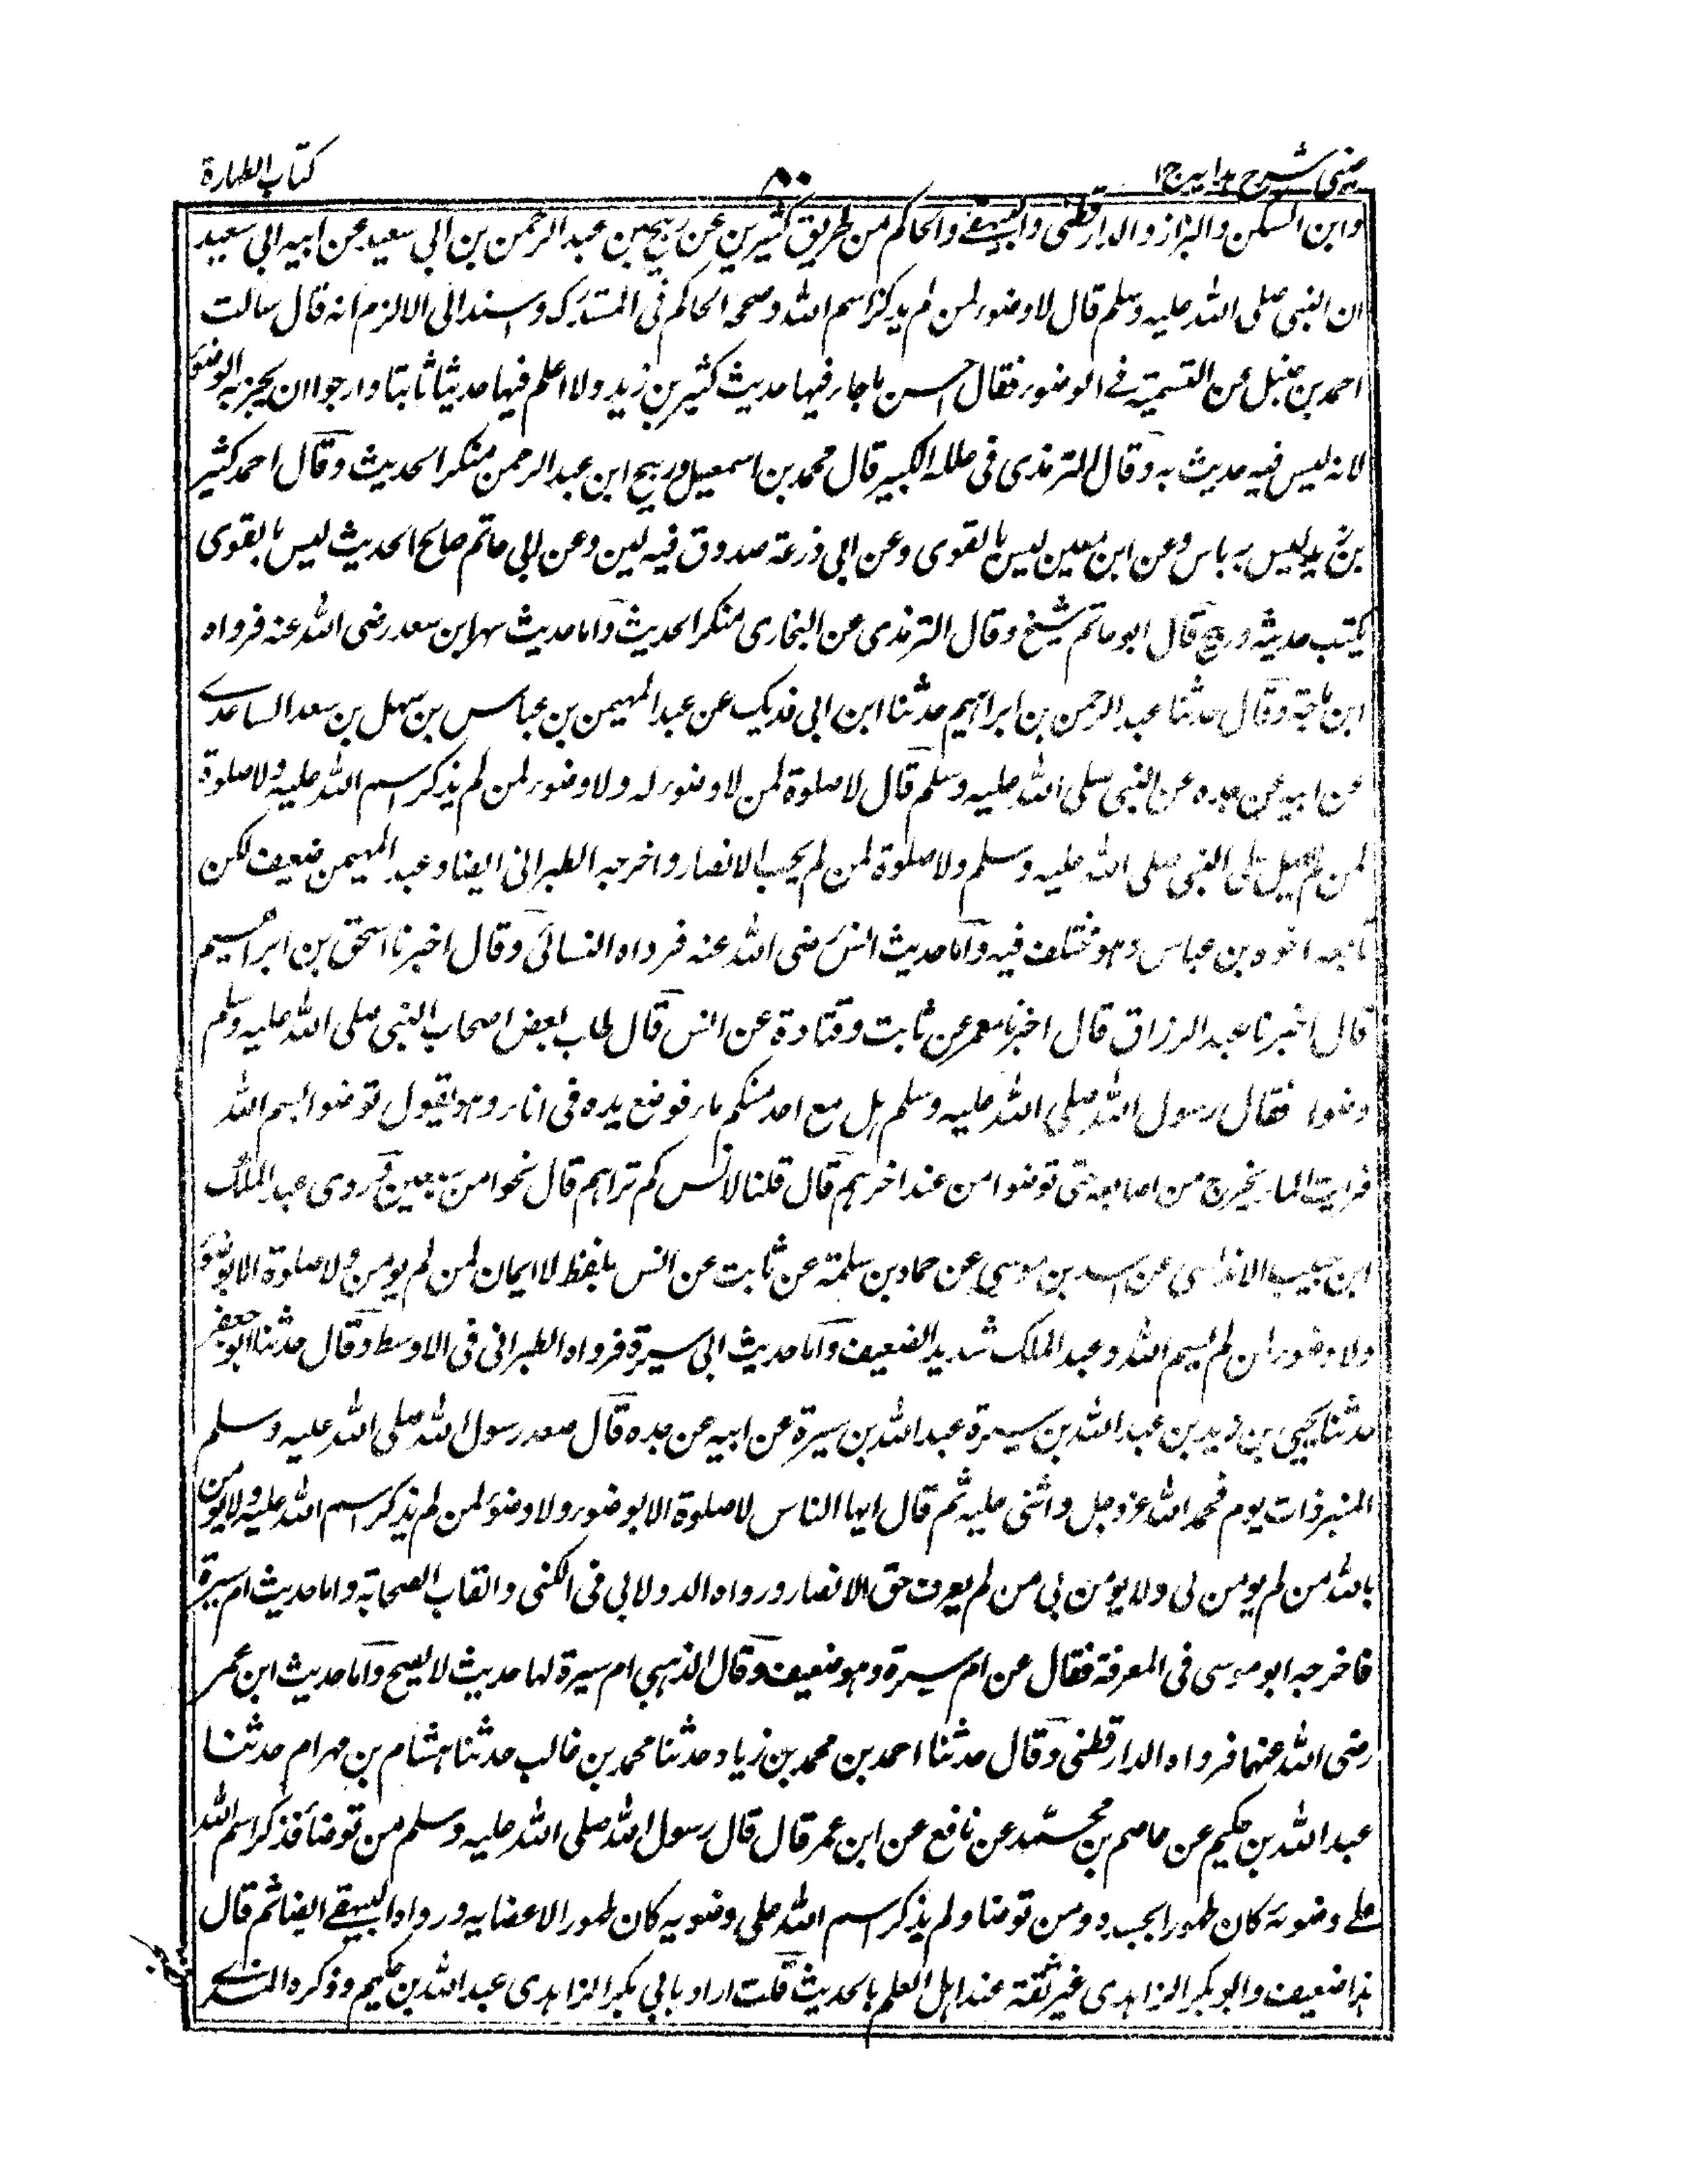 عینی شرح ہدایہ ج۱
۸۰
کتاب الطہارة
وابن السکن والبزاز والدارقطنی والبیہقے والحاکم من طریق کثیر بن عن ربیح بن عبد الرحمن بن ابی سعید عن ابیہ ابی سعید
ان النبی صلی اللہ علیہ وسلم قال لاوضوء لمن لم یذکر اسم اللہ وصححہ الحاکم فی المستدرک واسند الی الاثرم انہ قال سالت
احمد بن حنبل عن التسمیة فے الوضوء فقال احسن ماجاء فیہا حدیث کثیر بن زید ولا اعلم فیہا حدیثا ثابتا وارجوا ان یجزیہ الوضوء
لانہ لیس فیہ حدیث بہ وقال الترمذی فی عللہ الکبیر قال محمد بن اسمعیل وربیح ابن عبد الرحمن منکر الحدیث وقال احمد کثیر
بن زید لیس بہ باس وعن ابن معین لیس بالقوی وعن ابی ذرعة صدوق فیہ لین وعن ابی حاتم صالح الحدیث لیس بالقوی
یکتب حدیثہ وربیح قال ابو حاتم شیخ وقال الترمذی عن البخاری منکر الحدیث واما حدیث سہل ابن سعد رضی اللہ عنہ فرواہ
ابن ماجة وقال حدثنا عبد الرحمن بن ابراہیم حدثنا ابن ابی فدیک عن عبد المہیمن بن عباس بن سہل بن سعد الساعدے
عن ابیہ عن جدہ عن النبی صلی اللہ علیہ وسلم قال لاصلوة لمن لاوضوء لہ ولاوضوء لمن لم یذکر اسم اللہ علیہ ولاصلوة
لمن لم یصل علی النبی صلی اللہ علیہ وسلم ولاصلوة لمن لم یحب الانصار واخرجہ الطبرانی ایضا وعبد المہیمن ضعیف لکن
تابعہ اخوہ بن عباس وہو مختلف فیہ واما حدیث انس رضی اللہ عنہ فرواہ النسائی وقال اخبرنا اسحق بن ابراہیم
قال اخبرنا عبد الرزاق قال اخبرنا معمر عن ثابت وقتادة عن انس قال طاب بعض اصحاب النبی صلی اللہ علیہ وسلم
وضوا فقال رسول اللہ صلی اللہ علیہ وسلم ہل مع احد منکم ماء فوضع یدہ فی اناء وہو یقول توضوا بسم اللہ
فرایت الماء یخرج من اصابعہ حتی توضوا من عند اخرہم قال قلنا لانس کم تراہم قال نحوا من سبعین وروی عبد الملک
ابن حبیب الاندلسی عن اسد بن موسی عن حماد بن سلمة عن ثابت عن انس بلفظ لاایمان لمن لم یومن ولاصلوة الا بوضوء
ولاوضوء لمن لم یسم اللہ وعبد الملک شدید الضعیف واما حدیث ابی سبرة فرواہ الطبرانی فی الاوسط وقال حدثنا ابو جعفر
حدثنا یحیی بن زید بن عبد اللہ بن سبرة عبد اللہ بن سبرة عن ابیہ عن جدہ قال صعد رسول اللہ صلی اللہ علیہ وسلم
المنبر ذات یوم فحمد اللہ عزوجل واثنی علیہ ثم قال ایہا الناس لاصلوة الا بوضوء ولاوضوء لمن لم یذکر اسم اللہ علیہ ولایومن
باللہ من لم یومن بی ولا یومن بی من لم یعرف حق الانصار ورواہ الدولابی فی الکنی والقاب الصحابة واما حدیث ام سبرة
فاخرجہ ابو موسی فی المعرفة فقال عن ام سبرة وہو ضعیف وقال الذہبی ام سبرة لہا حدیث لایصح واما حدیث ابن عمر
رضی اللہ عنہما فرواہ الدارقطنی وقال حدثنا احمد بن محمد بن زیاد حدثنا محمد بن غالب حدثنا ہشام بن مہرام حدثنا
عبد اللہ بن حکیم عن عاصم بن محمد عن نافع عن ابن عمر قال قال رسول اللہ صلی اللہ علیہ وسلم من توضأ فذکر اسم اللہ
علے وضوئہ کان طہورا لجسدہ ومن توضا ولم یذکر اسم اللہ علی وضویہ کان طہورا لاعضایہ ورواہ البیہقے ایضا ثم قال
ہذا ضعیف وابو بکر الزاہدی غیر ثقة عند اہل العلم بالحدیث قلت اراد بابی بکر الزاہدی عبد اللہ بن حکیم وذکرہ المنذرے